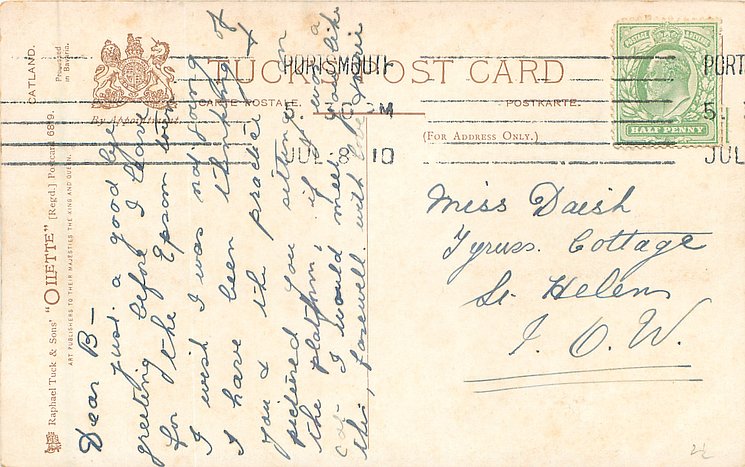 TUCK'S POST CARD
CARTE POSTALE.
POSTKARTE.
By Appointment.
(FOR ADDRESS ONLY.)
CATLAND.
Processed
in Bavaria.
Raphael Tuck & Sons' "OILETTE" [Regd.] Postcard 6819.
ART PUBLISHERS TO THEIR MAJESTIES THE KING AND QUEEN.
PORTSMOUTH
5. 30 PM
JUL 8 10
PORT
5.
JUL
POSTAGE & REVENUE
HALF PENNY
Miss Daish
Tyruss. Cottage
St. Helens
I. O. W.
Dear B—
just a good bye
greeting before I leave
for the Epsom town
I wish I was not going
I have been thinking of
you & the practice &
pictured you sitting on
the platform; if I was a
cat I would meet you like
this, farewell with love
2½